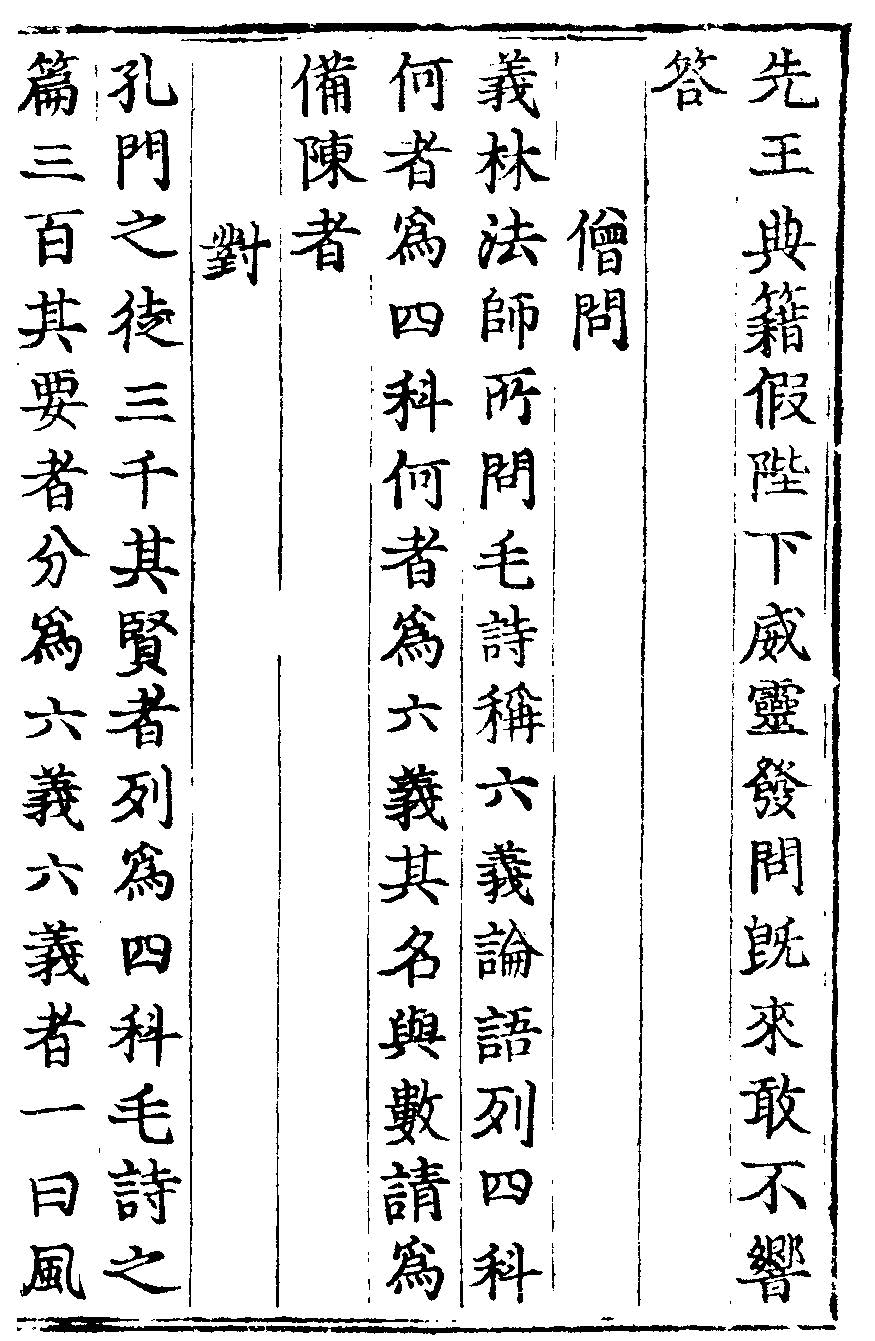 先王典籍假陛下威靈發問旣來敢不響
答
僧問
義林法師所問毛詩稱六義論語列四科
何者爲四科何者爲六義其名與數請爲
備陳者
對
孔門之徒三千其賢者列爲四科毛詩之
篇三百其要者分爲六義六義者一曰風